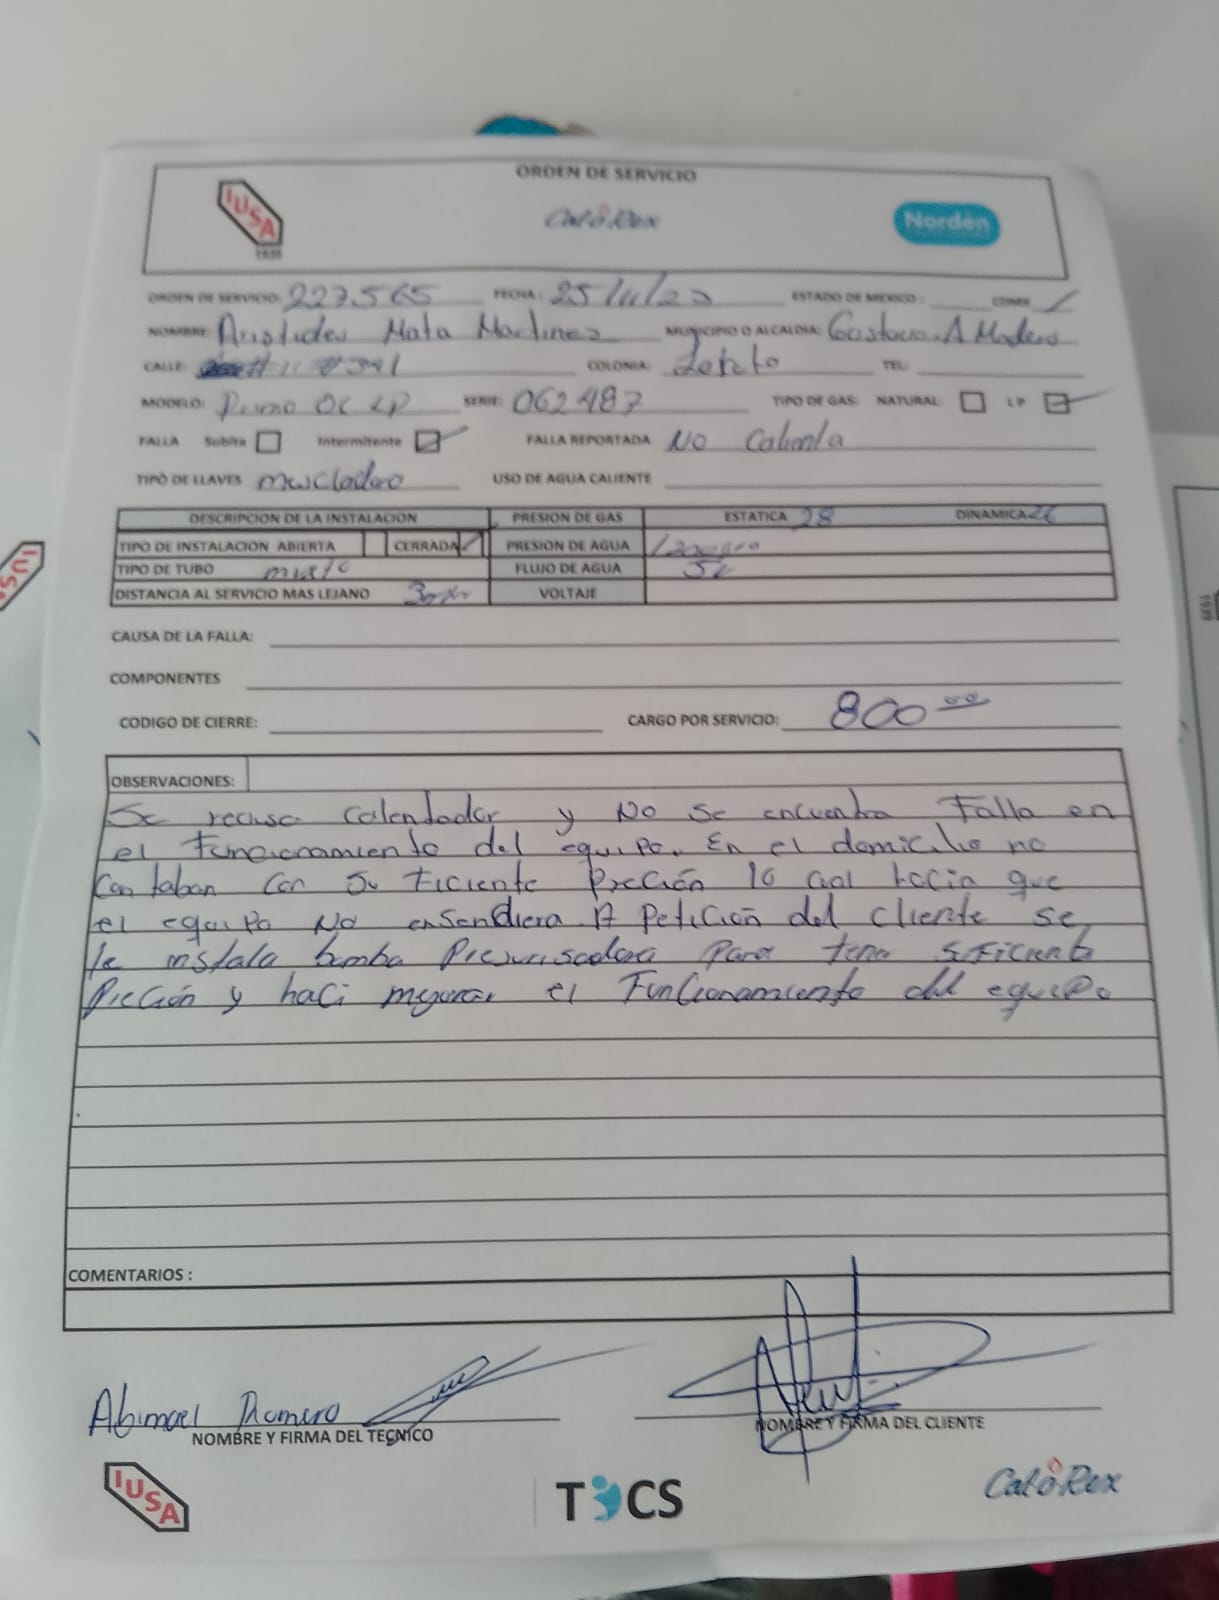 ORDEN DE SERVICIO
IUSA
1939
CalORex
Nordèn
ORDEN DE SERVICIO: 227565 FECHA: 25/11/22 ESTADO DE MEXICO: CDMX
NOMBRE: Aristides Mata Martinez MUNICIPIO O ALCALDIA: Gustavo. A Madero
CALLE: #11 #341 COLONIA: Loreto TEL:
MODELO: Primo OC LP SERIE: 062487 TIPO DE GAS: NATURAL LP
FALLA Subita Intermitente FALLA REPORTADA No Calienta
TIPÒ DE LLAVES mescladora USO DE AGUA CALIENTE
DESCRIPCION DE LA INSTALACION PRESION DE GAS ESTATICA 28 DINAMICA 26
TIPO DE INSTALACION ABIERTA CERRADA PRESION DE AGUA
TIPO DE TUBO mixto FLUJO DE AGUA 5L
DISTANCIA AL SERVICIO MAS LEJANO VOLTAJE
CAUSA DE LA FALLA:
COMPONENTES
CODIGO DE CIERRE: CARGO POR SERVICIO: 800 00
OBSERVACIONES:
Se recisa Calentador y No se encuentra Falla en
el Funcionamiento del equipo. En el domicilio no
Contaban con Suficiente Preción lo cual hacia que
el equipo No ensendiera. A Petición del cliente se
le instala bomba Presurisadora para tener suficiente
Preción y haci mejorar el Funcionamiento del equipo
COMENTARIOS :
Abimael Romero
NOMBRE Y FIRMA DEL TECNICO NOMBRE Y FIRMA DEL CLIENTE
IUSA
TOCS
CalORex